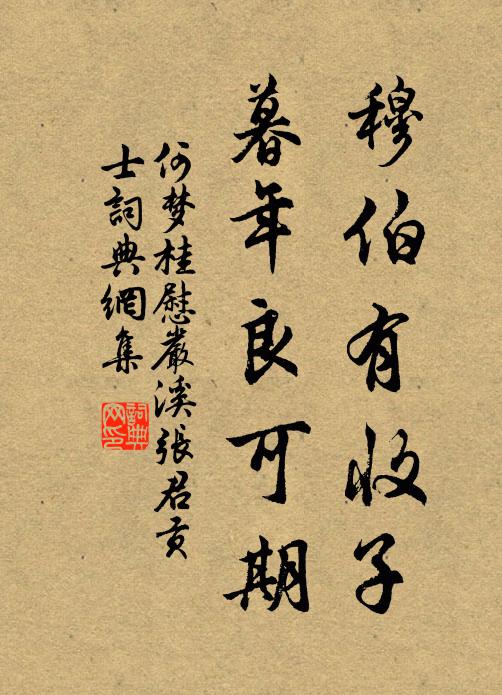 穆伯有收子
暮年良可期
何梦桂慰嚴溪張君贡
士詞典網集
詞典网印